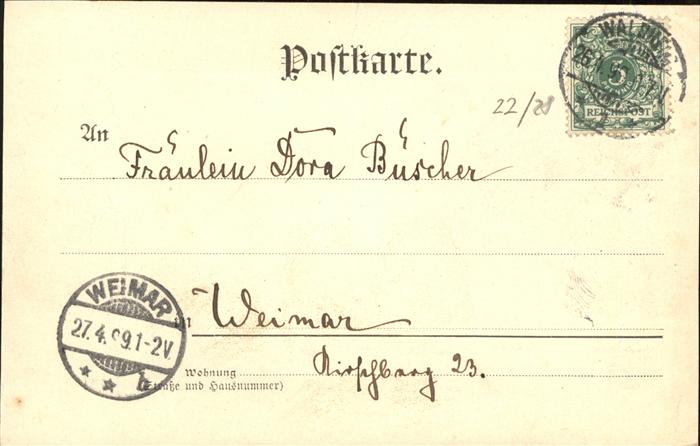 Postkarte.
5
REICHSPOST
22/28
An
Fräulein Dora Büscher
WEIMAR
27.4.99.1-2V.
in Weimar
Wohnung
(Straße und Hausnummer)
Kirschberg 23.